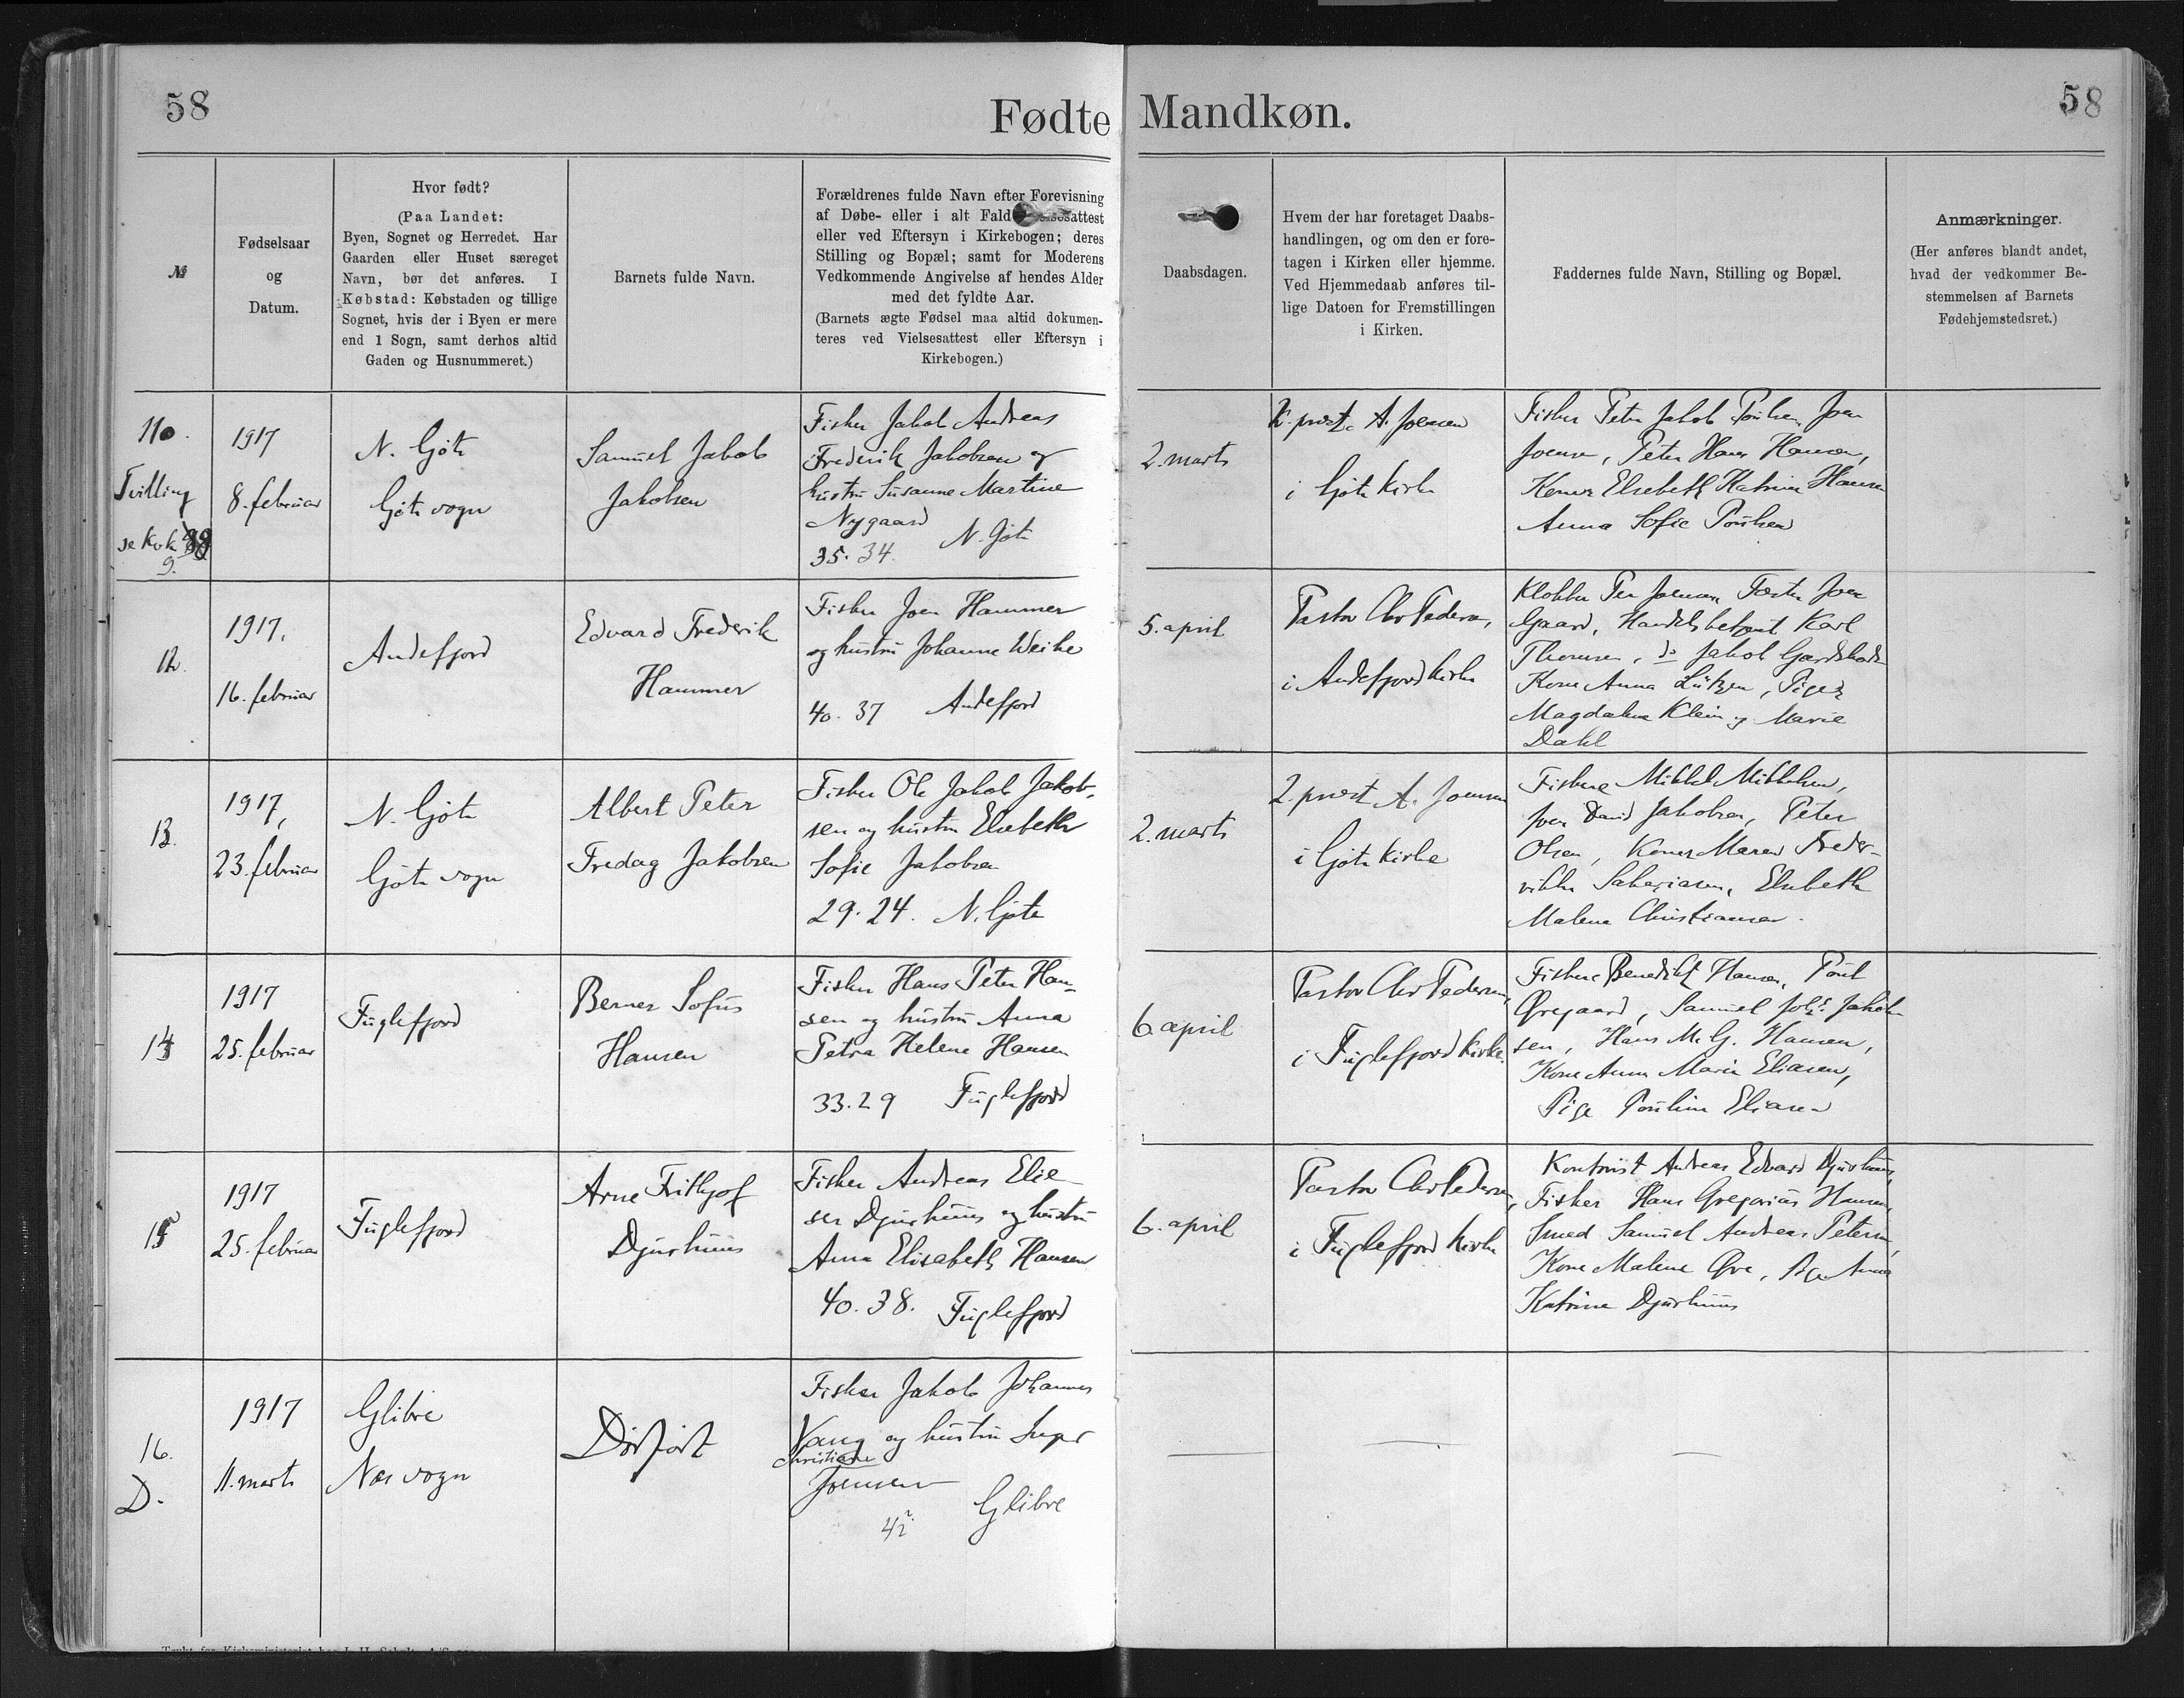 58
Fødte Mandkøn.
58
№
Fødselsaar
og
Datum.
Hvor født?
(Paa Landet:
Byen, Sognet og Herredet. Har
Gaarden eller Huset særeget
Navn, bør det anføres. I
Købstad: Købstaden og tillige
Sognet, hvis der i Byen er mere
end 1 Sogn, samt derhos altid
Gaden og Husnummeret.)
Barnets fulde Navn.
Forældrenes fulde Navn efter Forevisning
af Døbe- eller i alt Fald
eller ved Eftersyn i Kirkebogen; deres
Stilling og Bopæl; samt for Moderens
Vedkommende Angivelse af hendes Alder
med det fyldte Aar.
(Barnets ægte Fødsel maa altid dokumen-
teres ved Vielsesattest eller Eftersyn i
Kirkebogen.)
Daabsdagen.
Hvem der har foretaget Daabs-
handlingen, og om den er fore-
tagen i Kirken eller hjemme.
Ved Hjemmedaab anføres til-
lige Datoen for Fremstillingen
i Kirken.
Faddernes fulde Navn, Stilling og Bopæl.
Anmærkninger.
(Her anføres blandt andet,
hvad der vedkommer Be-
stemmelsen af Barnets
Fødehjemstedsret.)
Tvilling
se Kvk
9.
1917
8. februar
N. Gjøte
Gjøte sogn
Samuel Jakob
Jakobsen
Fisker Jakob Andreas
Frederik Jakobsen og
hustru Susanne Martine
Nygaard
35. 34. N. Gjøte
2. marts
A. Joensen
i Gjøte Kirke
Fisker Peter Jakob Poulsen, Joen
Joensen, Peter Hans Hansen,
Koner Elsebeth Katrine Hansen
Anna Sofie Poulsen
12.
1917.
16. februar
Andefjord
Edvard Frederik
Hammer
Fisker Joen Hammer
og hustru Johanne Weihe
40. 37 Andefjord
5. april
Pastor Chr Pedersen,
i Andefjord Kirke
Klokker Per Joensen, Joen
Gaard, Handelsbetjent Karl
Thomsen, do Jakob
Kone Anna Lützen, Piger
Magdalene Klein og Marie
Dahl
13.
1917,
23. februar
N. Gjøte
Gjøte sogn
Albert Peter
Fredag Jakobsen
Fisker Ole Jakob Jakob-
sen og hustru Elsebeth
Sofie Jakobsen
29. 24. N. Gjøte
2. marts
2. præst A. Joensen
i Gjøte Kirke
Fiskere Mikkel Mikkelsen,
Joen David Jakobsen, Peter
Olsen, Koner Maren Freder-
rikke Sakariasen, Elsebeth
Malene Christiansen.
14
1917
25. februar
Fuglefjord
Berner Sofus
Hansen
Fisker Hans Peter Han-
sen og hustru Anna
Petra Helene Hansen
33. 29 Fuglefjord
6. april
Pastor Chr Pedersen,
i Fuglefjord Kirke.
Fiskere Benedikt Hansen, Poul
Øregaard, Samuel Johs. Jakob-
sen, Hans M. G. Hansen,
Kone Anna Marie Eliasen,
Pige Pouline Eliasen
15
1917
25. februar
Fuglefjord
Arne Frithjof
Djurhuus
Fisker Andreas Elie-
ser Djurhuus og hustru
Anna Elisabeth Hansen
40. 38. Fuglefjord
6. april
Pastor Chr Pedersen,
i Fuglefjord Kirke
Kontorist Andreas Edvard Djurhuus,
Fisker Hans Gregorius Hansen,
Smed Samuel Andreas Petersen,
Kone Malene Øre, Pige Anna
Katrine Djurhuus
16.
D.
1917
11. marts
Glibre
Nes sogn
Dødfødt
Fisker Jakob Johannes
Vang og hustru Inger
Christiane
Joensen
42 Glibre